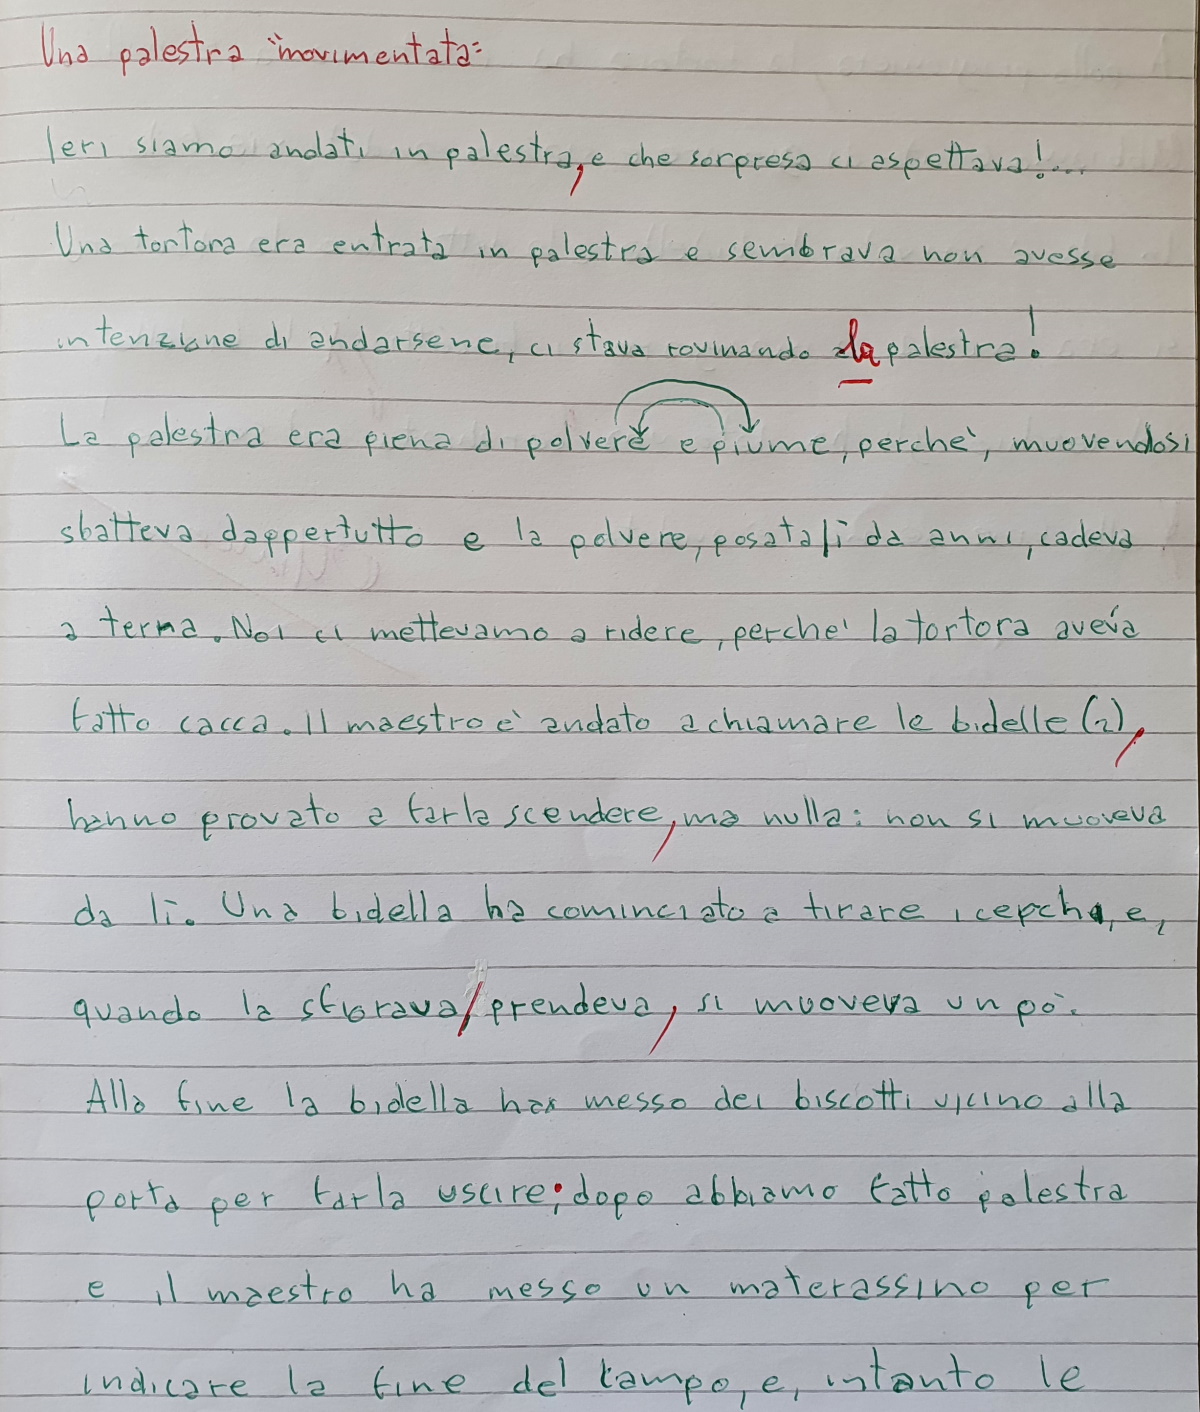 Una palestra "movimentata"
Ieri siamo andati in palestra, e che sorpresa ci aspettava!...
Una tortora era entrata in palestra e sembrava non avesse
intenzione di andarsene, ci stava rovinando la palestra!
La palestra era piena di polvere e piume, perchè, muovendosi
sbatteva dappertutto e la polvere, posata lì da anni, cadeva
a terra. Noi ci mettevamo a ridere, perchè la tortora aveva
fatto cacca. Il maestro è andato a chiamare le bidelle (2),
hanno provato a farla scendere, ma nulla: non si muoveva
da lì. Una bidella ha cominciato a tirare i cerchi, e,
quando la sfiorava/prendeva, si muoveva un pò.
Alla fine la bidella ha messo dei biscotti vicino alla
porta per farla uscire; dopo abbiamo fatto palestra
e il maestro ha messo un materassino per
indicare la fine del campo, e, intanto le